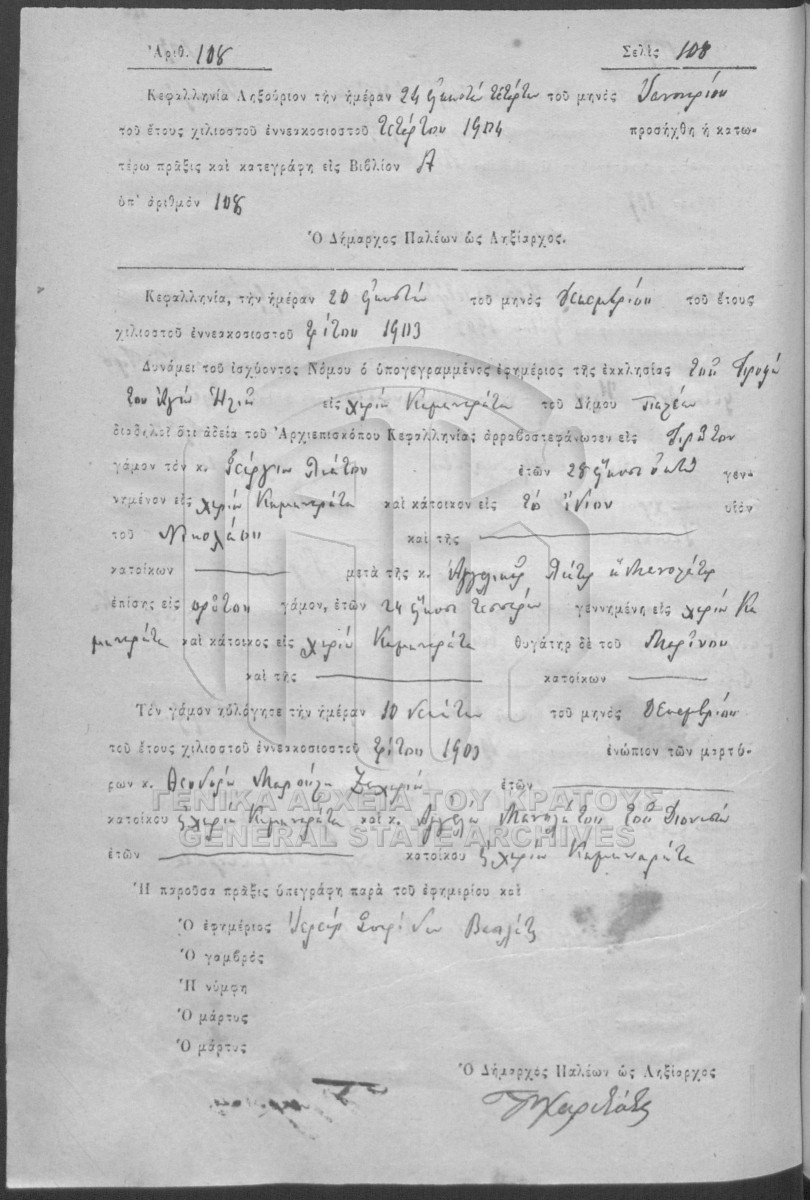 Ἀριθ. 108 Σελὶς 108
Κεφαλληνία Ληξούριον τὴν ἡμέραν 24 εἰκοστὴ τετάρτη τοῦ μηνὸς Ἰανουαρίου
τοῦ ἔτους χιλιοστοῦ ἐννεακοσιοστοῦ τετάρτου 1904 προσήχθη ἡ κατω-
τέρω πρᾶξις καὶ κατεγράφη εἰς Βιβλίον Α
ὑπ' ἀριθμὸν 108
Ὁ Δήμαρχος Παλέων ὡς Ληξίαρχος.
Κεφαλληνία, τὴν ἡμέραν 20 εἰκοστὴν τοῦ μηνὸς Δεκεμβρίου τοῦ ἔτους
χιλιοστοῦ ἐννεακοσιοστοῦ τρίτου 1903
Δυνάμει τοῦ ἰσχύοντος Νόμου ὁ ὑπογεγραμμένος ἐφημέριος τῆς ἐκκλησίας τοῦ Προφή
του Ἁγίου Ἠλία εἰς χωρίον Καμιναράτα τοῦ Δήμου Παλέων
διαδηλοῖ ὅτι ἀδείᾳ τοῦ Ἀρχιεπισκόπου Κεφαλληνίας ἀρραβοστεφάνωσεν εἰς πρῶτον
γάμον τὸν κ. Γεώργιον ἐτῶν 28 εἴκοσι ὀκτὼ γεν-
νημένον εἰς χωρίον Καμιναράτα καὶ κάτοικον εἰς τὸ ἴδιον υἱὸν
τοῦ Νικολάου καὶ τῆς
κατοίκων μετὰ τῆς κ. Ἀγγελικῆς
ἐπίσης εἰς πρῶτον γάμον, ἐτῶν 24 εἴκοσι τεσσάρων γεννημένη εἰς χωρίον Κα
μιναράτα καὶ κάτοικος εἰς χωρίον Καμιναράτα θυγάτηρ δὲ τοῦ Μαρίνου
καὶ τῆς κατοίκων
Τὸν γάμον ηὐλόγησε τὴν ἡμέραν 10 δεκάτην τοῦ μηνὸς Δεκεμβρίου
τοῦ ἔτους χιλιοστοῦ ἐννεακοσιοστοῦ τρίτου 1903 ἐνώπιον τῶν μαρτύ-
ρων κ. Θεοδώρου Ζαχαρία ἐτῶν
κατοίκου χωρίον Καμιναράτα καὶ κ. Μανολάτου τοῦ Διονυσίου
ἐτῶν κατοίκου χωρίον Καμιναράτα
ΓΕΝΙΚΑ ΑΡΧΕΙΑ ΤΟΥ ΚΡΑΤΟΥΣ
GENERAL STATE ARCHIVES
Ἡ παροῦσα πρᾶξις ὑπεγράφη παρὰ τοῦ ἐφημερίου καὶ
Ὁ ἐφημέριος Ἱερεὺς Σπυρίδων
Ὁ γαμβρὸς
Ἡ νύμφη
Ὁ μάρτυς
Ὁ μάρτυς
Ὁ Δήμαρχος Παλέων ὡς Ληξίαρχος